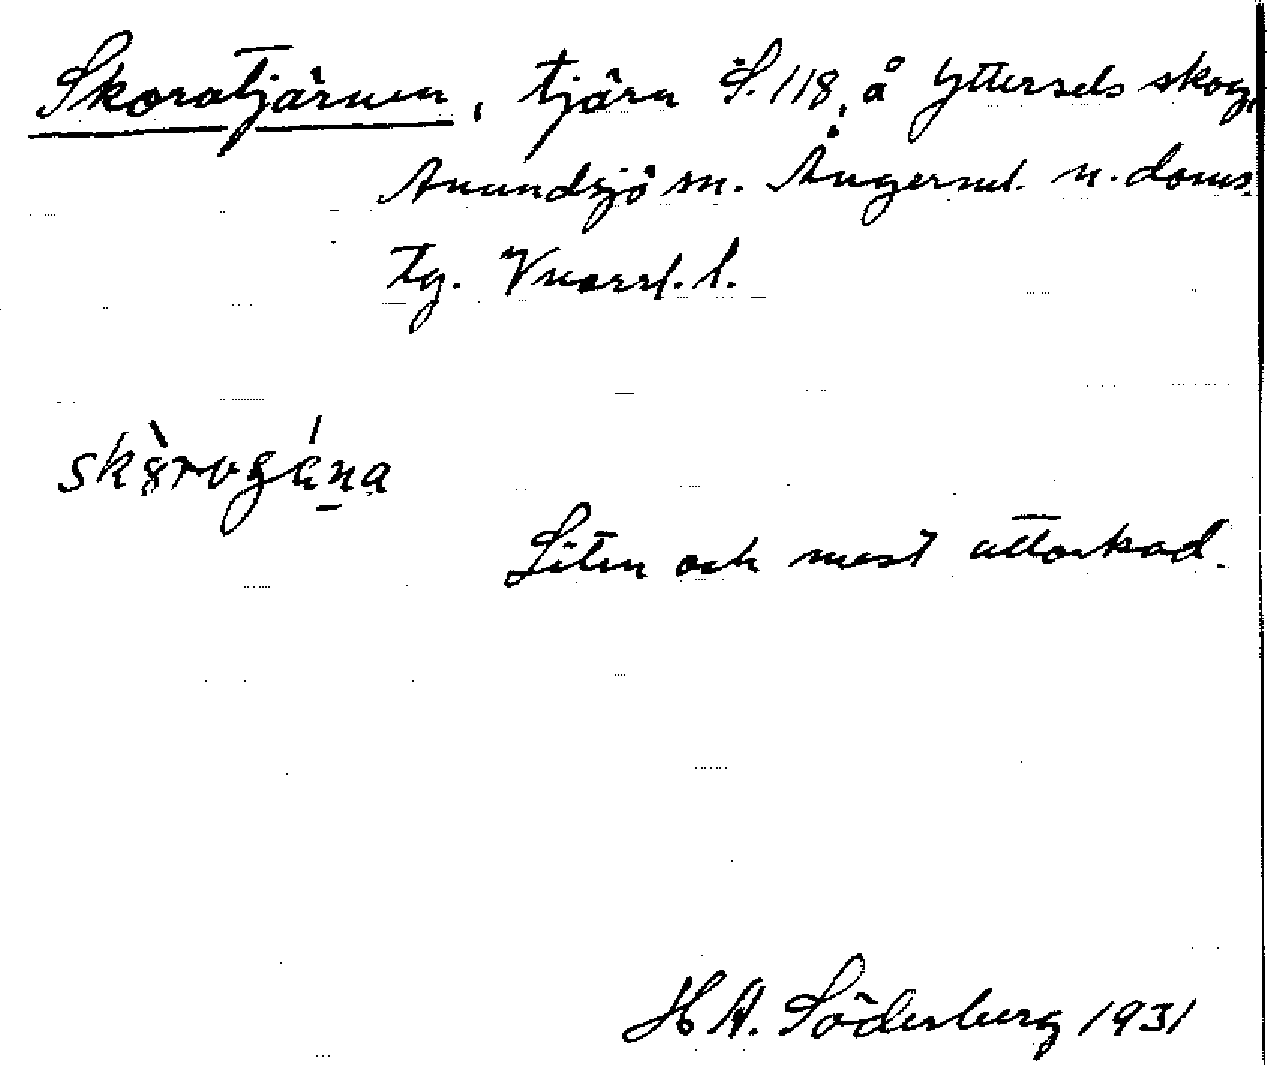 Skoratjärnen, tjärn S.118, å Yttersels skog,
Anundsjö sn. Ångerml. n. doms.
tg. Vnorrl. l.
Liten och mest uttorkad.
H A. Söderberg 1931